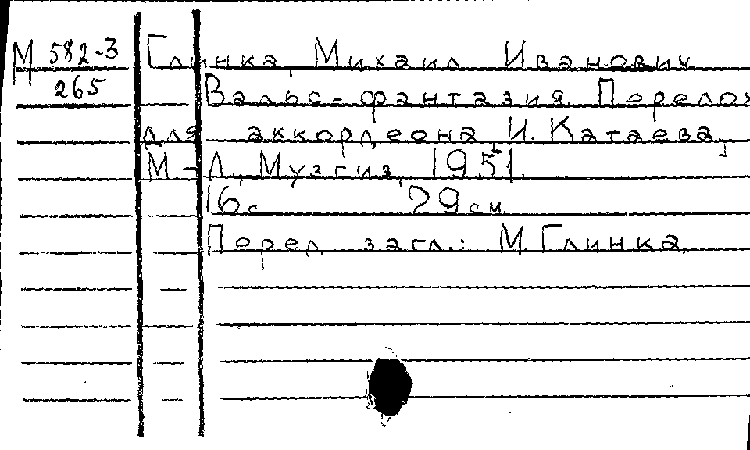 М 582-3 Глинка, Михаил Иванович
265 Вальс-фантазия. Перелож
для аккордеона И. Катаева.
М.-Л., Музгиз, 1951.
16 с. 29 см.
Перед загл.: М. Глинка.